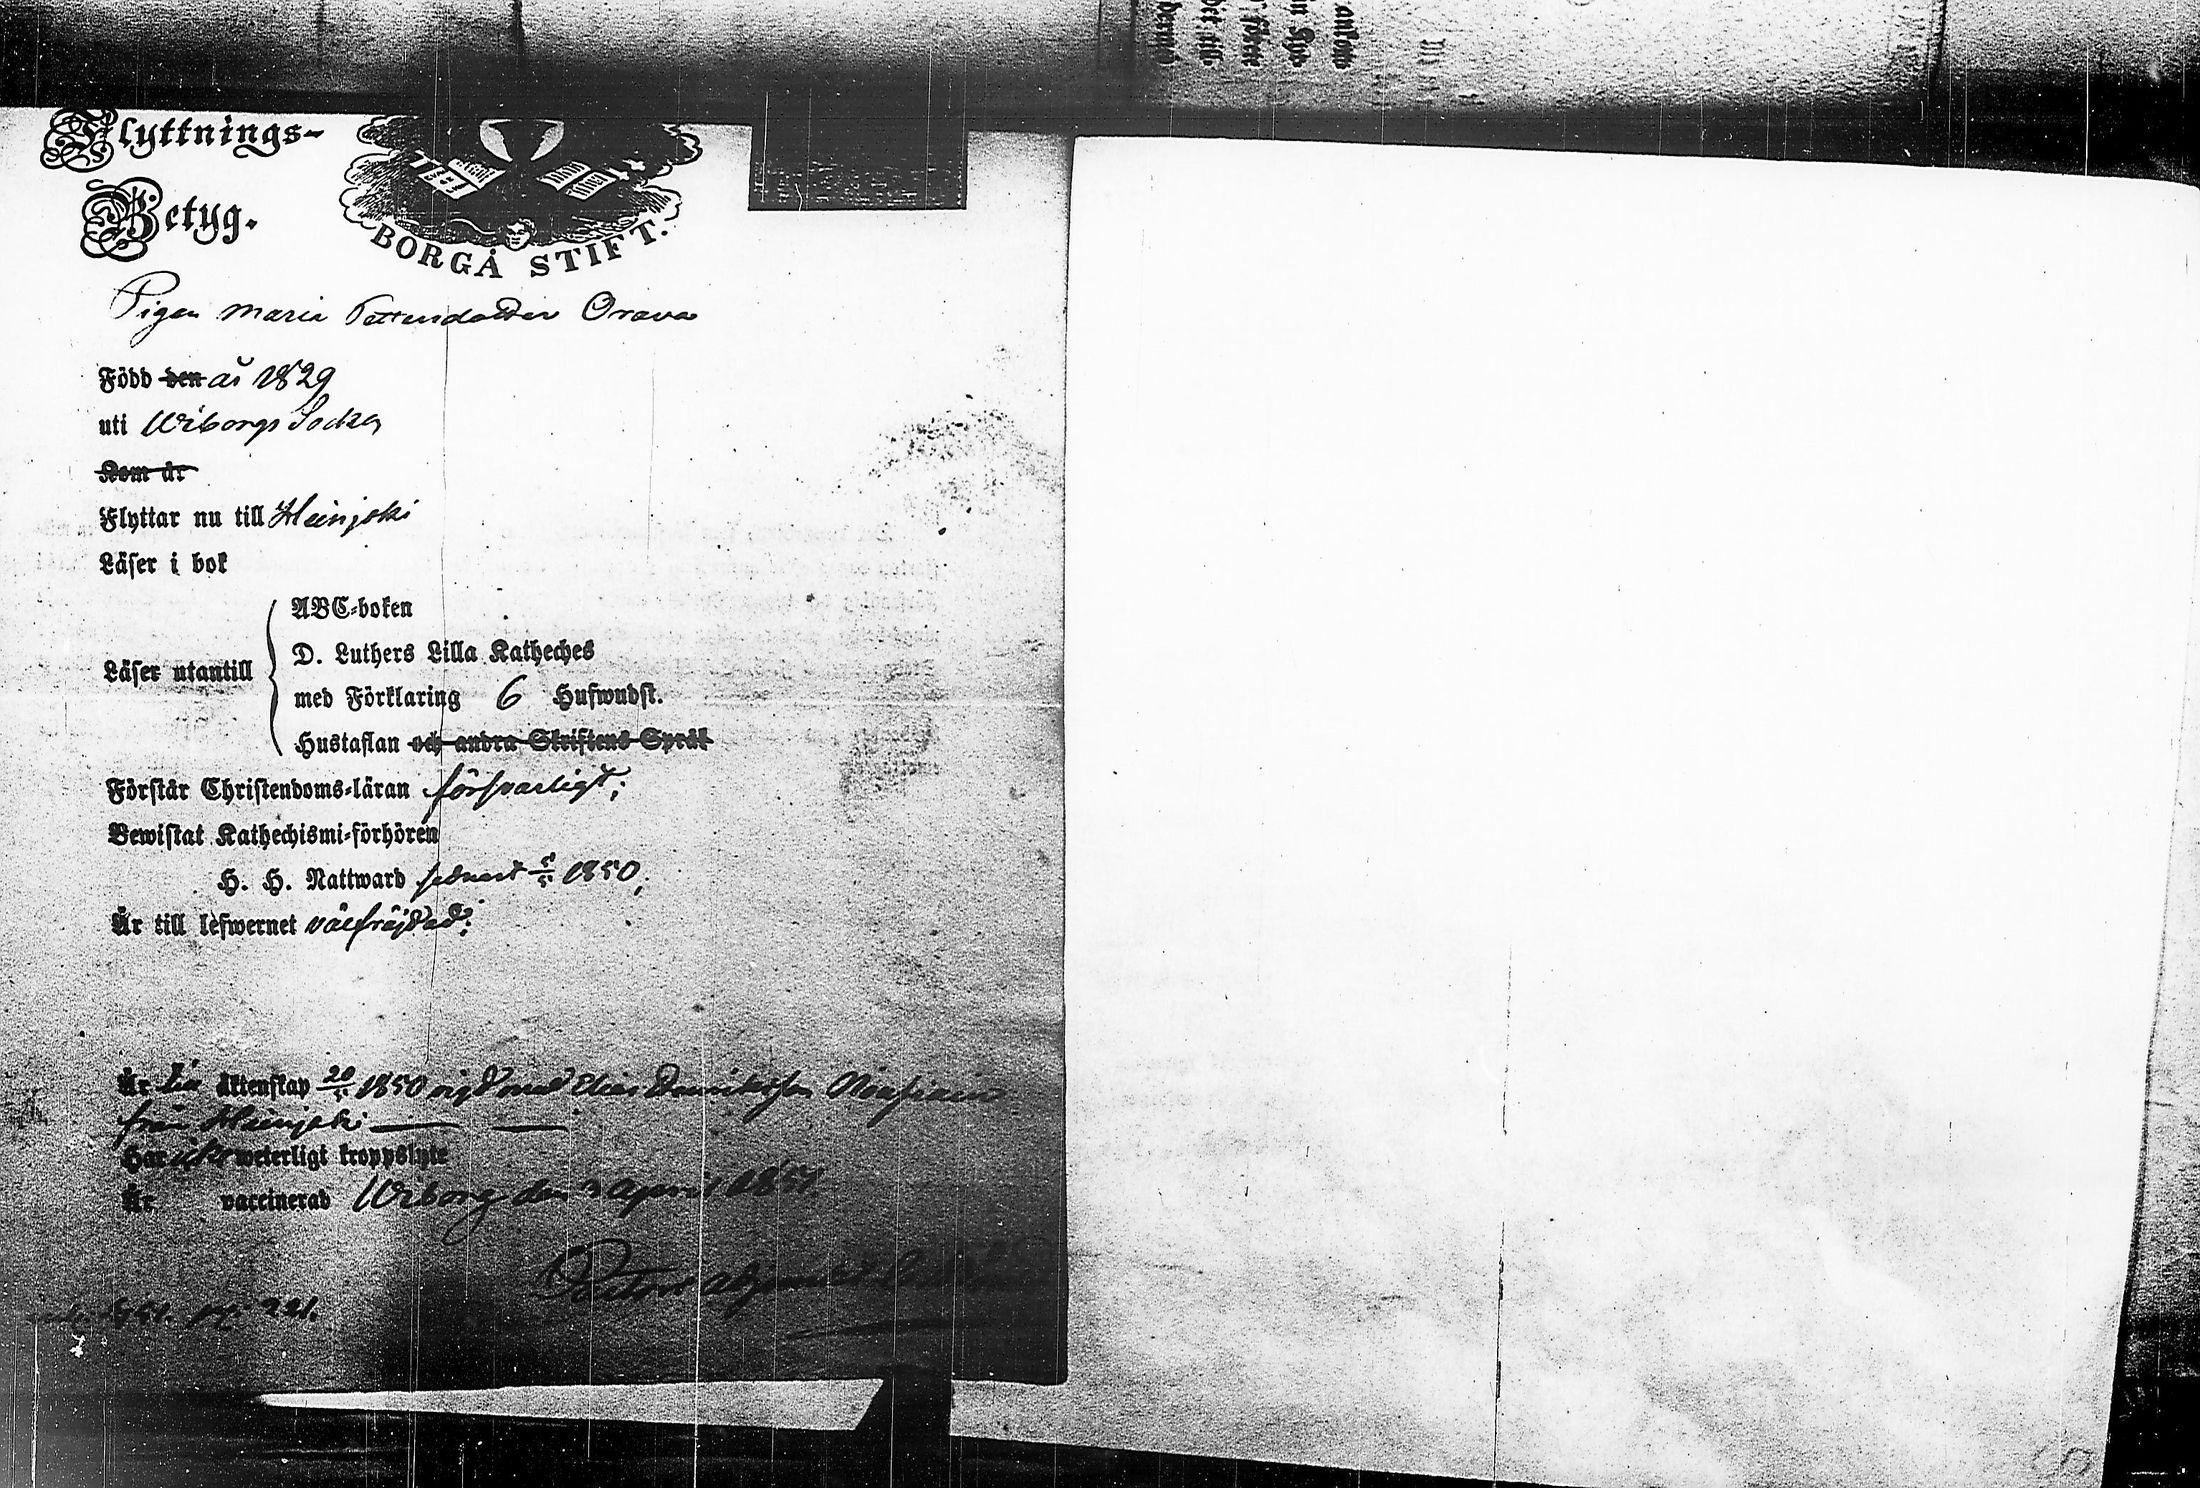 Flyttnings-
Betyg.
BORGÅ STIFT.
Pigan Maria Pettersdotter Orava
Född den år 1829
uti Wiborgs Sockn
Kom år
Flyttar nu till Heinjoki
Läser i bok
ABC-boken
Läser utantill
D. Luthers Lilla Katheches
med Förklaring 6 Hufwudst.
Hustaflan och andra Skriftens Språk
Förstår Christendoms-läran försvarligt;
Bewistat Kathechismi-förhören
H. H. Nattward sednast 5/5 1850;
Är till lefwernet välfräjdad;
Är äktenskap 20/5 1850 vigd med Elias Henriksson
från Heinjoki
Har icke weterligt kroppslyte
Är vaccinerad Wiborg den 3 April 1851
Pastors Adjunkt
1851. 221.